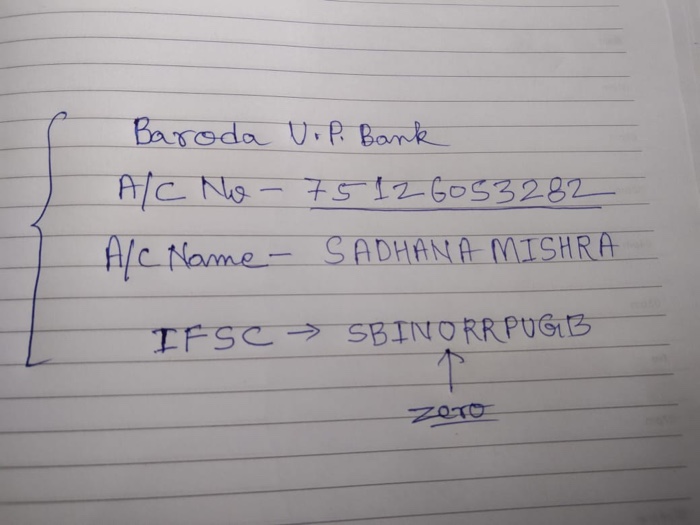 Baroda U.P. Bank
A/C No - 75126053282
A/C Name - SADHANA MISHRA
IFSC → SBIN0RRPUGB
↑
zero